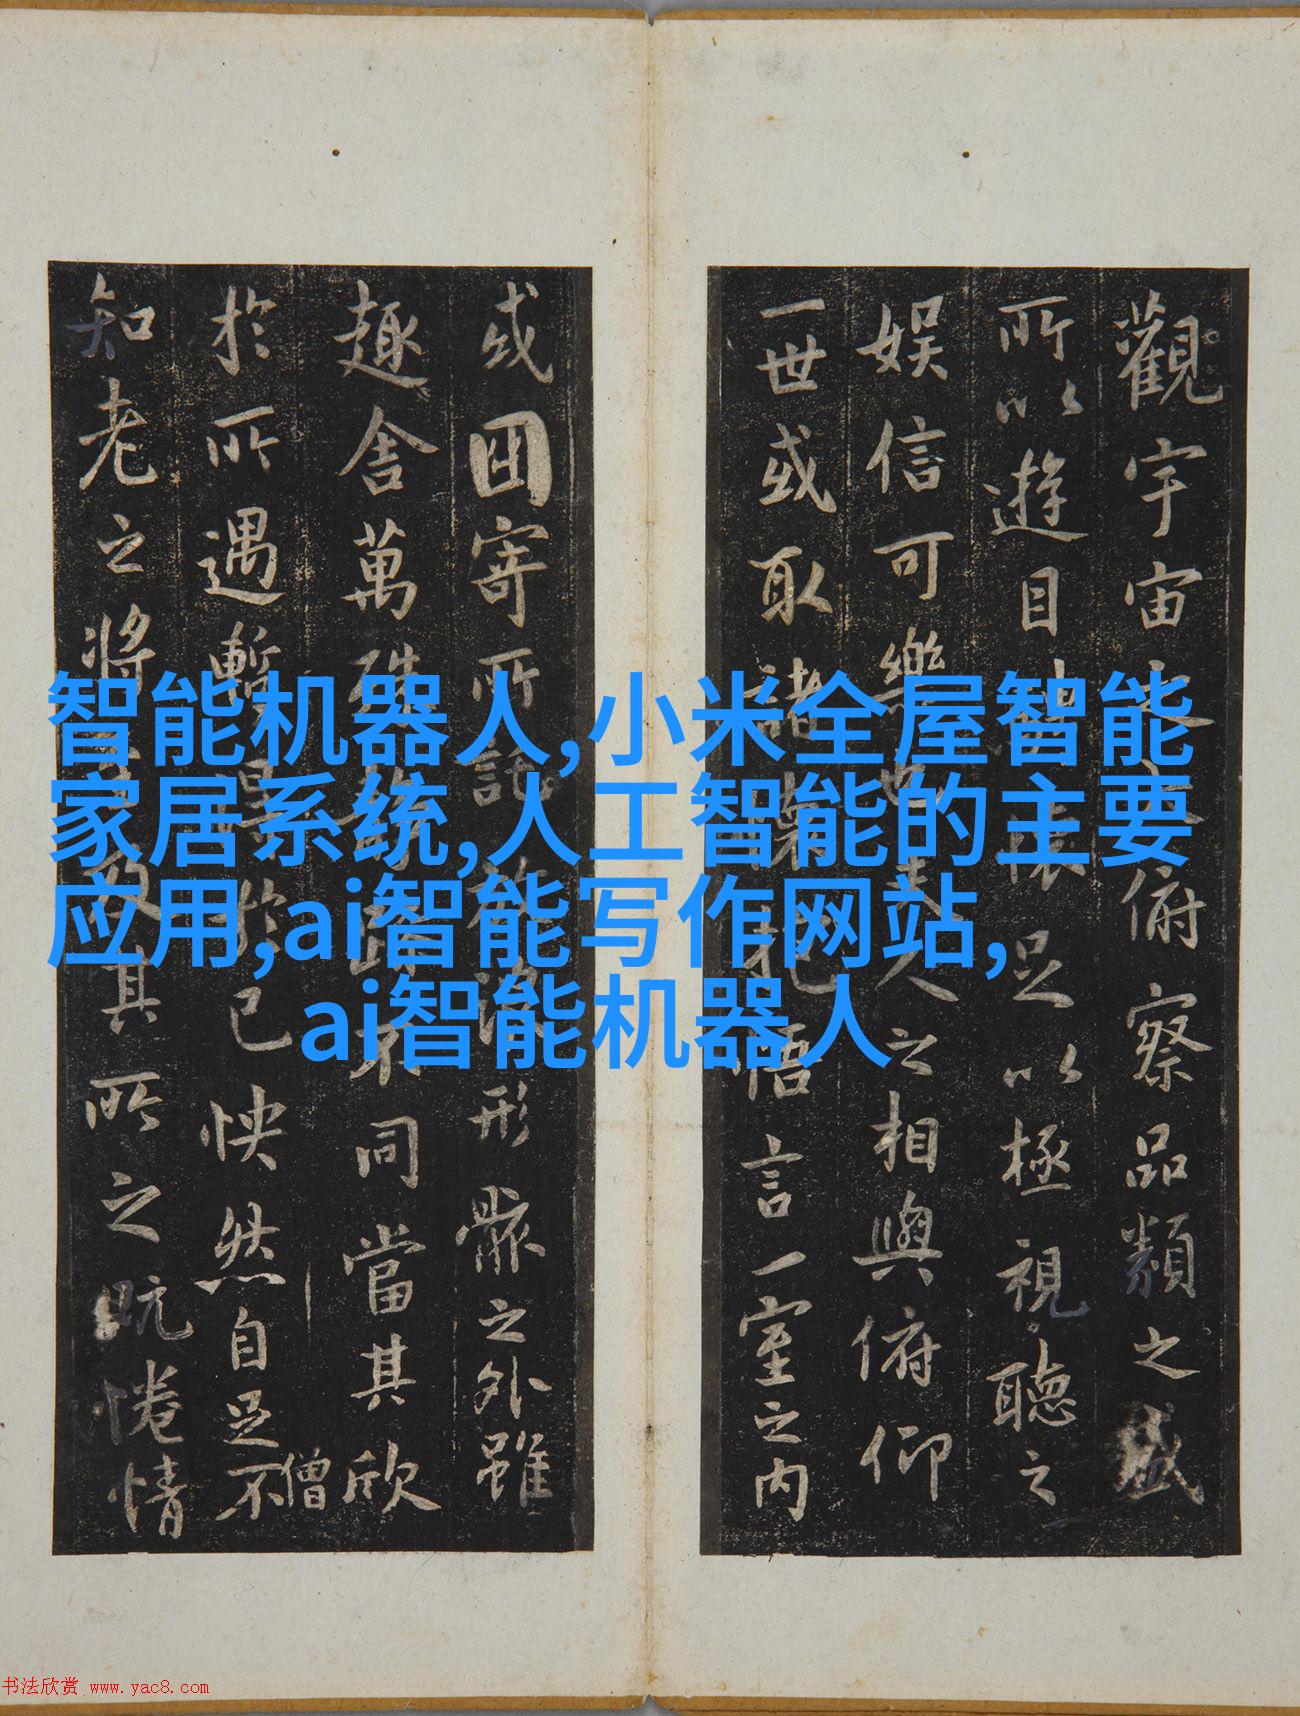 觀宇宙之大俯察品類之盛
所以遊目騁懷足以極視聽之
娛信可樂也夫人之相與俯仰
一世或取諸懷抱悟言一室之内
或因寄所託放浪形骸之外雖
趣舍萬殊躁不同當其欣
於所遇暫得於己快然自足不
僧
知老之將至及其所之既惓情
智能机器人,小米全屋智能
家居系统,人工智能的主要
应用,ai智能写作网站,
ai智能机器人
书法欣赏 www.yac8.com